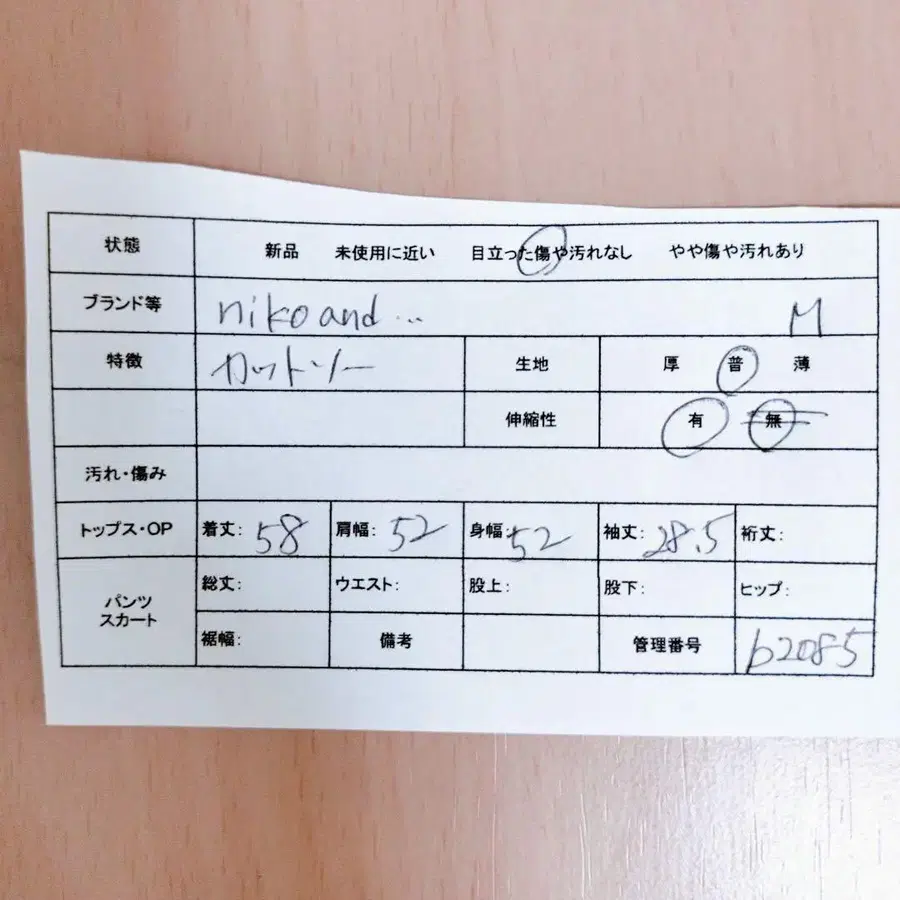 状態 新品 未使用に近い 目立った傷や汚れなし やや傷や汚れあり
ブランド等 niko and... M
特徴 カットソー 生地 厚 普 薄
伸縮性 有 無
汚れ・傷み
トップス・OP 着丈: 58 肩幅: 52 身幅: 52 袖丈: 28.5 裄丈:
パンツ スカート 総丈: ウエスト: 股上: 股下: ヒップ:
裾幅: 備考 管理番号 b2085